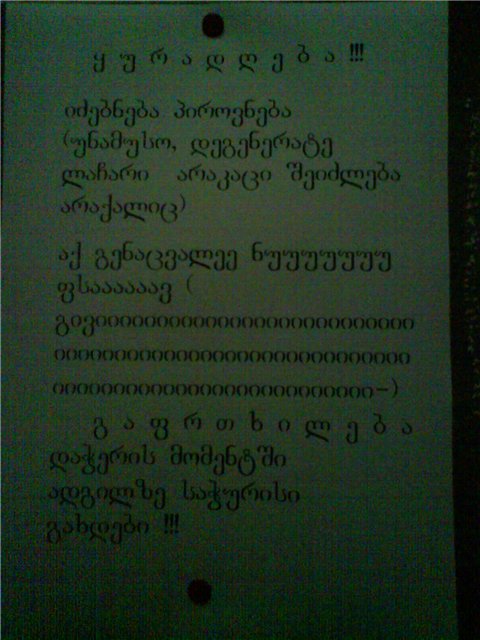 ყ უ რ ა დ ღ ე ბ ა !!!
იძებნება პიროვნება
(უნამუსო, დეგენერატე
ლაჩარი არაკაცი შეიძლება
არაქალიც)
აქ გენაცვალეე ნუუუუუუუ
ფსაააააავ (
გივიიიიიიიიიიიიიიიიიიიიიიიიიი
იიიიიიიიიიიიიიიიიიიიიიიიიიიიი
იიიიიიიიიიიიიიიიიიიიიიიიიი–)
გ ა ფ რ თ ხ ი ლ ე ბ ა
დაჭერის მომენტში
ადგილზე საჭურისი
გახდები !!!